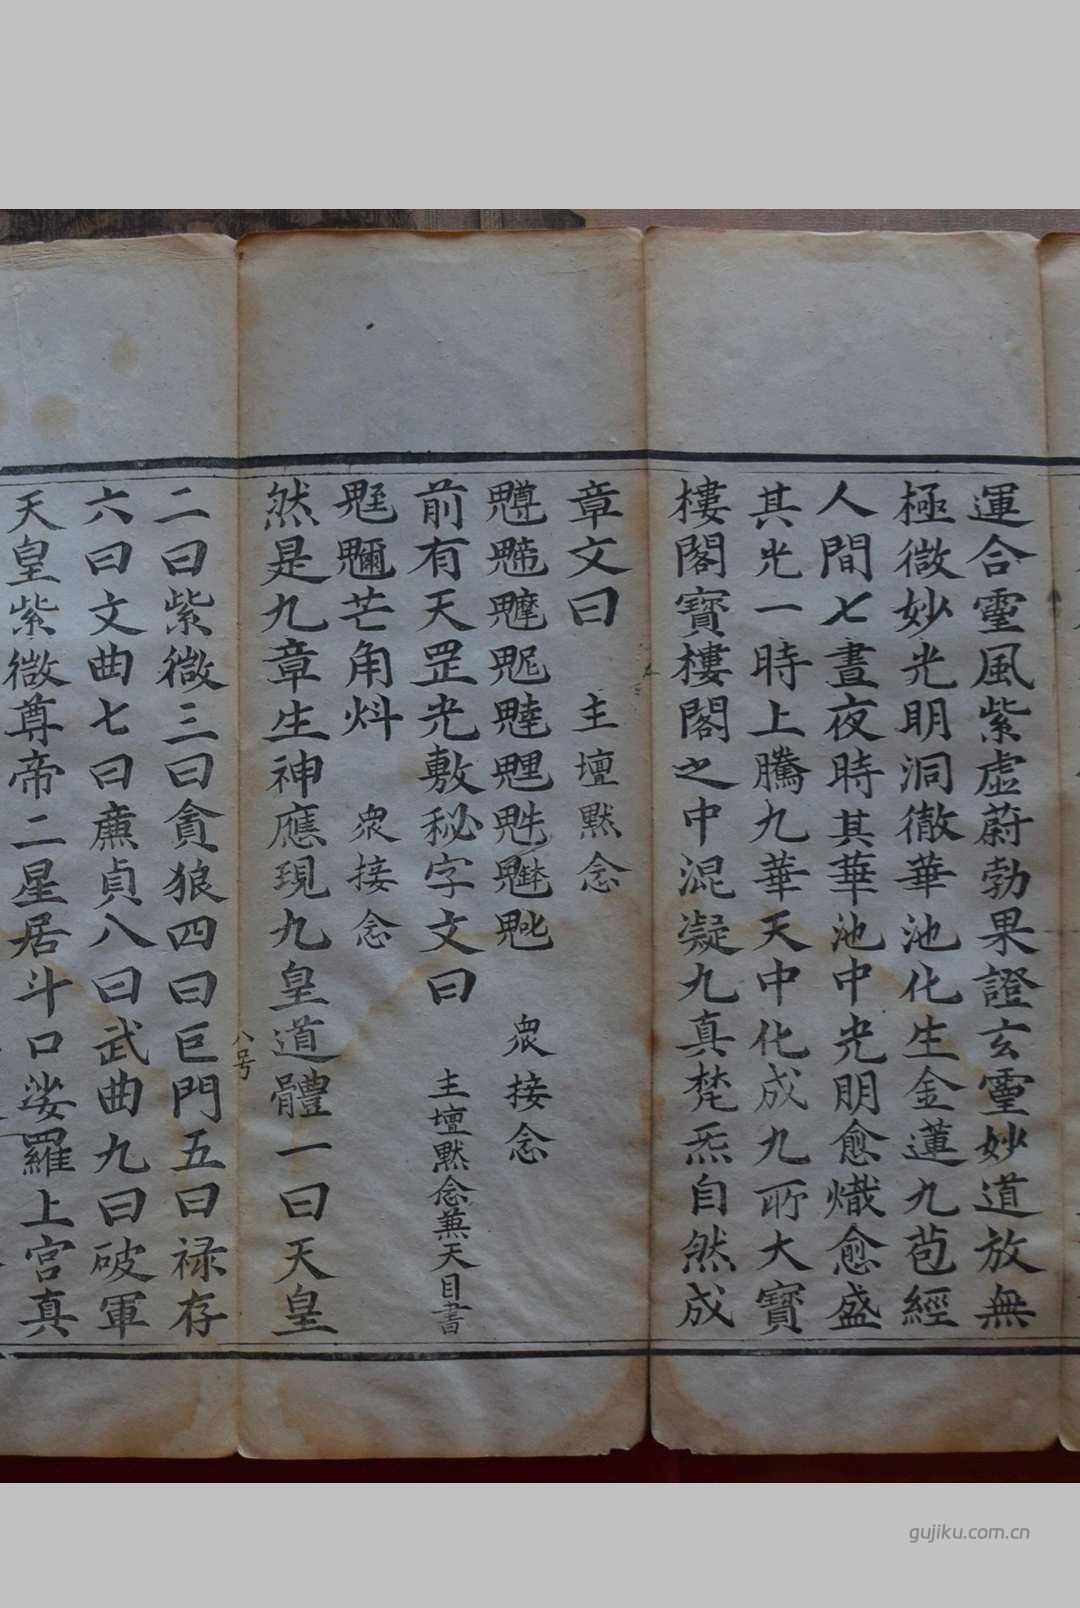 運合霊風紫虛蔚勃果證玄霊妙道放無
極微妙光明洞徹華池化生金蓮九苞經
人間七晝夜時其華池中光明愈熾愈盛
其光一時上騰九華天中化成九所大寶
樓閣寶樓閣之中混凝九真梵炁自然成
章文曰 主壇默念
衆接念
前有天罡光敷秘字文曰 主壇默念兼天目書
芒角炓 衆接念
然是九章生神應現九皇道體一曰天皇
八号
二曰紫微三曰貪狼四曰巨門五曰禄存
六曰文曲七曰廉貞八曰武曲九曰破軍
天皇紫微尊帝二星居斗口娑羅上宮真
gujiku.com.cn